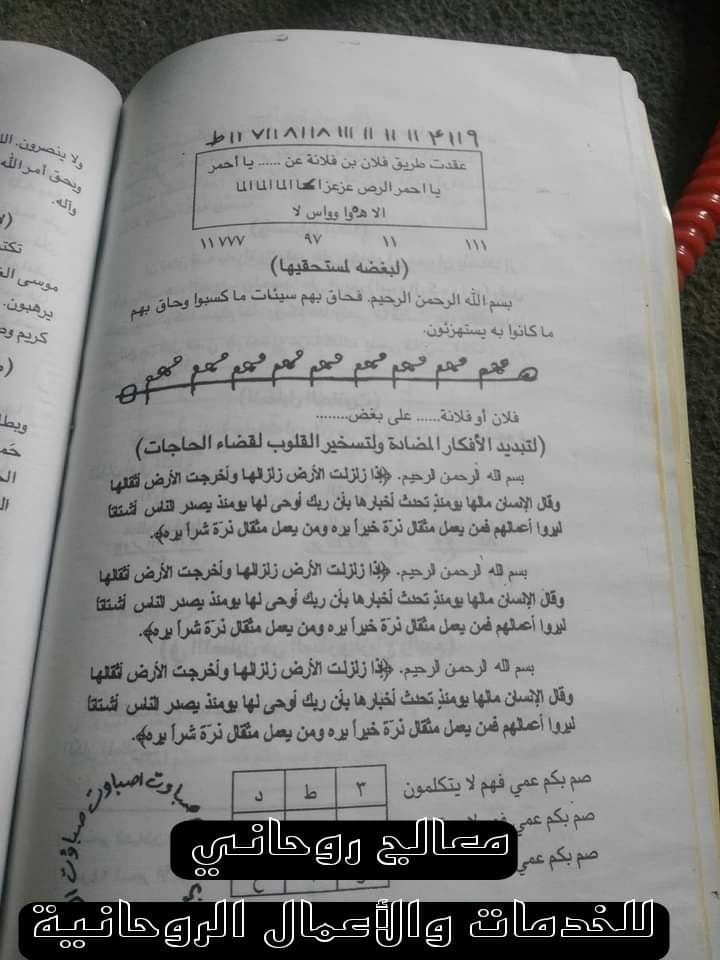 ٩ ١ ١ ٣ ١١ ١١ ١١ ١١١ ٨ ١١ ٨ ١١ ٧ ١١ ط
عقدت طريق فلان بن فلانة عن ...... يا أحمر
يا احمر الرص عزعزا الما الما الما
الا هوا وواس لا
١١١ ١١ ٩٧ ١١٧٧٧
(لبغضه لمستحقيها)
بسم الله الرحمن الرحيم. فحاق بهم سيئات ما كسبوا وحاق بهم
ما كانوا به يستهزئون.
فلان أو فلانة...... على بغض........
(لتبديد الأفكار المضادة ولتسخير القلوب لقضاء الحاجات)
بسم الله الرحمن الرحيم. ﴿إذا زلزلت الأرض زلزالها وأخرجت الأرض أثقالها
وقال الإنسان مالها يومئذ تحدث أخبارها بأن ربك أوحى لها يومئذ يصدر الناس أشتاتاً
ليروا أعمالهم فمن يعمل مثقال ذرة خيراً يره ومن يعمل مثقال ذرة شراً يره﴾.
بسم الله الرحمن الرحيم. ﴿إذا زلزلت الأرض زلزالها وأخرجت الأرض أثقالها
وقال الإنسان مالها يومئذ تحدث أخبارها بأن ربك أوحى لها يومئذ يصدر الناس أشتاتاً
ليروا أعمالهم فمن يعمل مثقال ذرة خيراً يره ومن يعمل مثقال ذرة شراً يره﴾.
بسم الله الرحمن الرحيم. ﴿إذا زلزلت الأرض زلزالها وأخرجت الأرض أثقالها
وقال الإنسان مالها يومئذ تحدث أخبارها بأن ربك أوحى لها يومئذ يصدر الناس أشتاتاً
ليروا أعمالهم فمن يعمل مثقال ذرة خيراً يره ومن يعمل مثقال ذرة شراً يره﴾.
صم بكم عمي فهم لا يتكلمون
٣ ط د
صم بكم عمي فهم لا
صم بكم عمي
صباوت اصباوت صباؤت
ولا ينصرون.
ويحق أمر الله
وآله.
موسى
يرهبون.
كريم
معالج روحاني
للخدمات والأعمال الروحانية